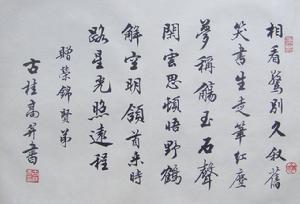 相看驚别久叙舊
笑書生走筆紅塵
夢稱觴玉石聲
閑雲思頓悟野鶴
解空明領首来時
路星光照遠程
贈榮錦賢弟
古桂高昇書